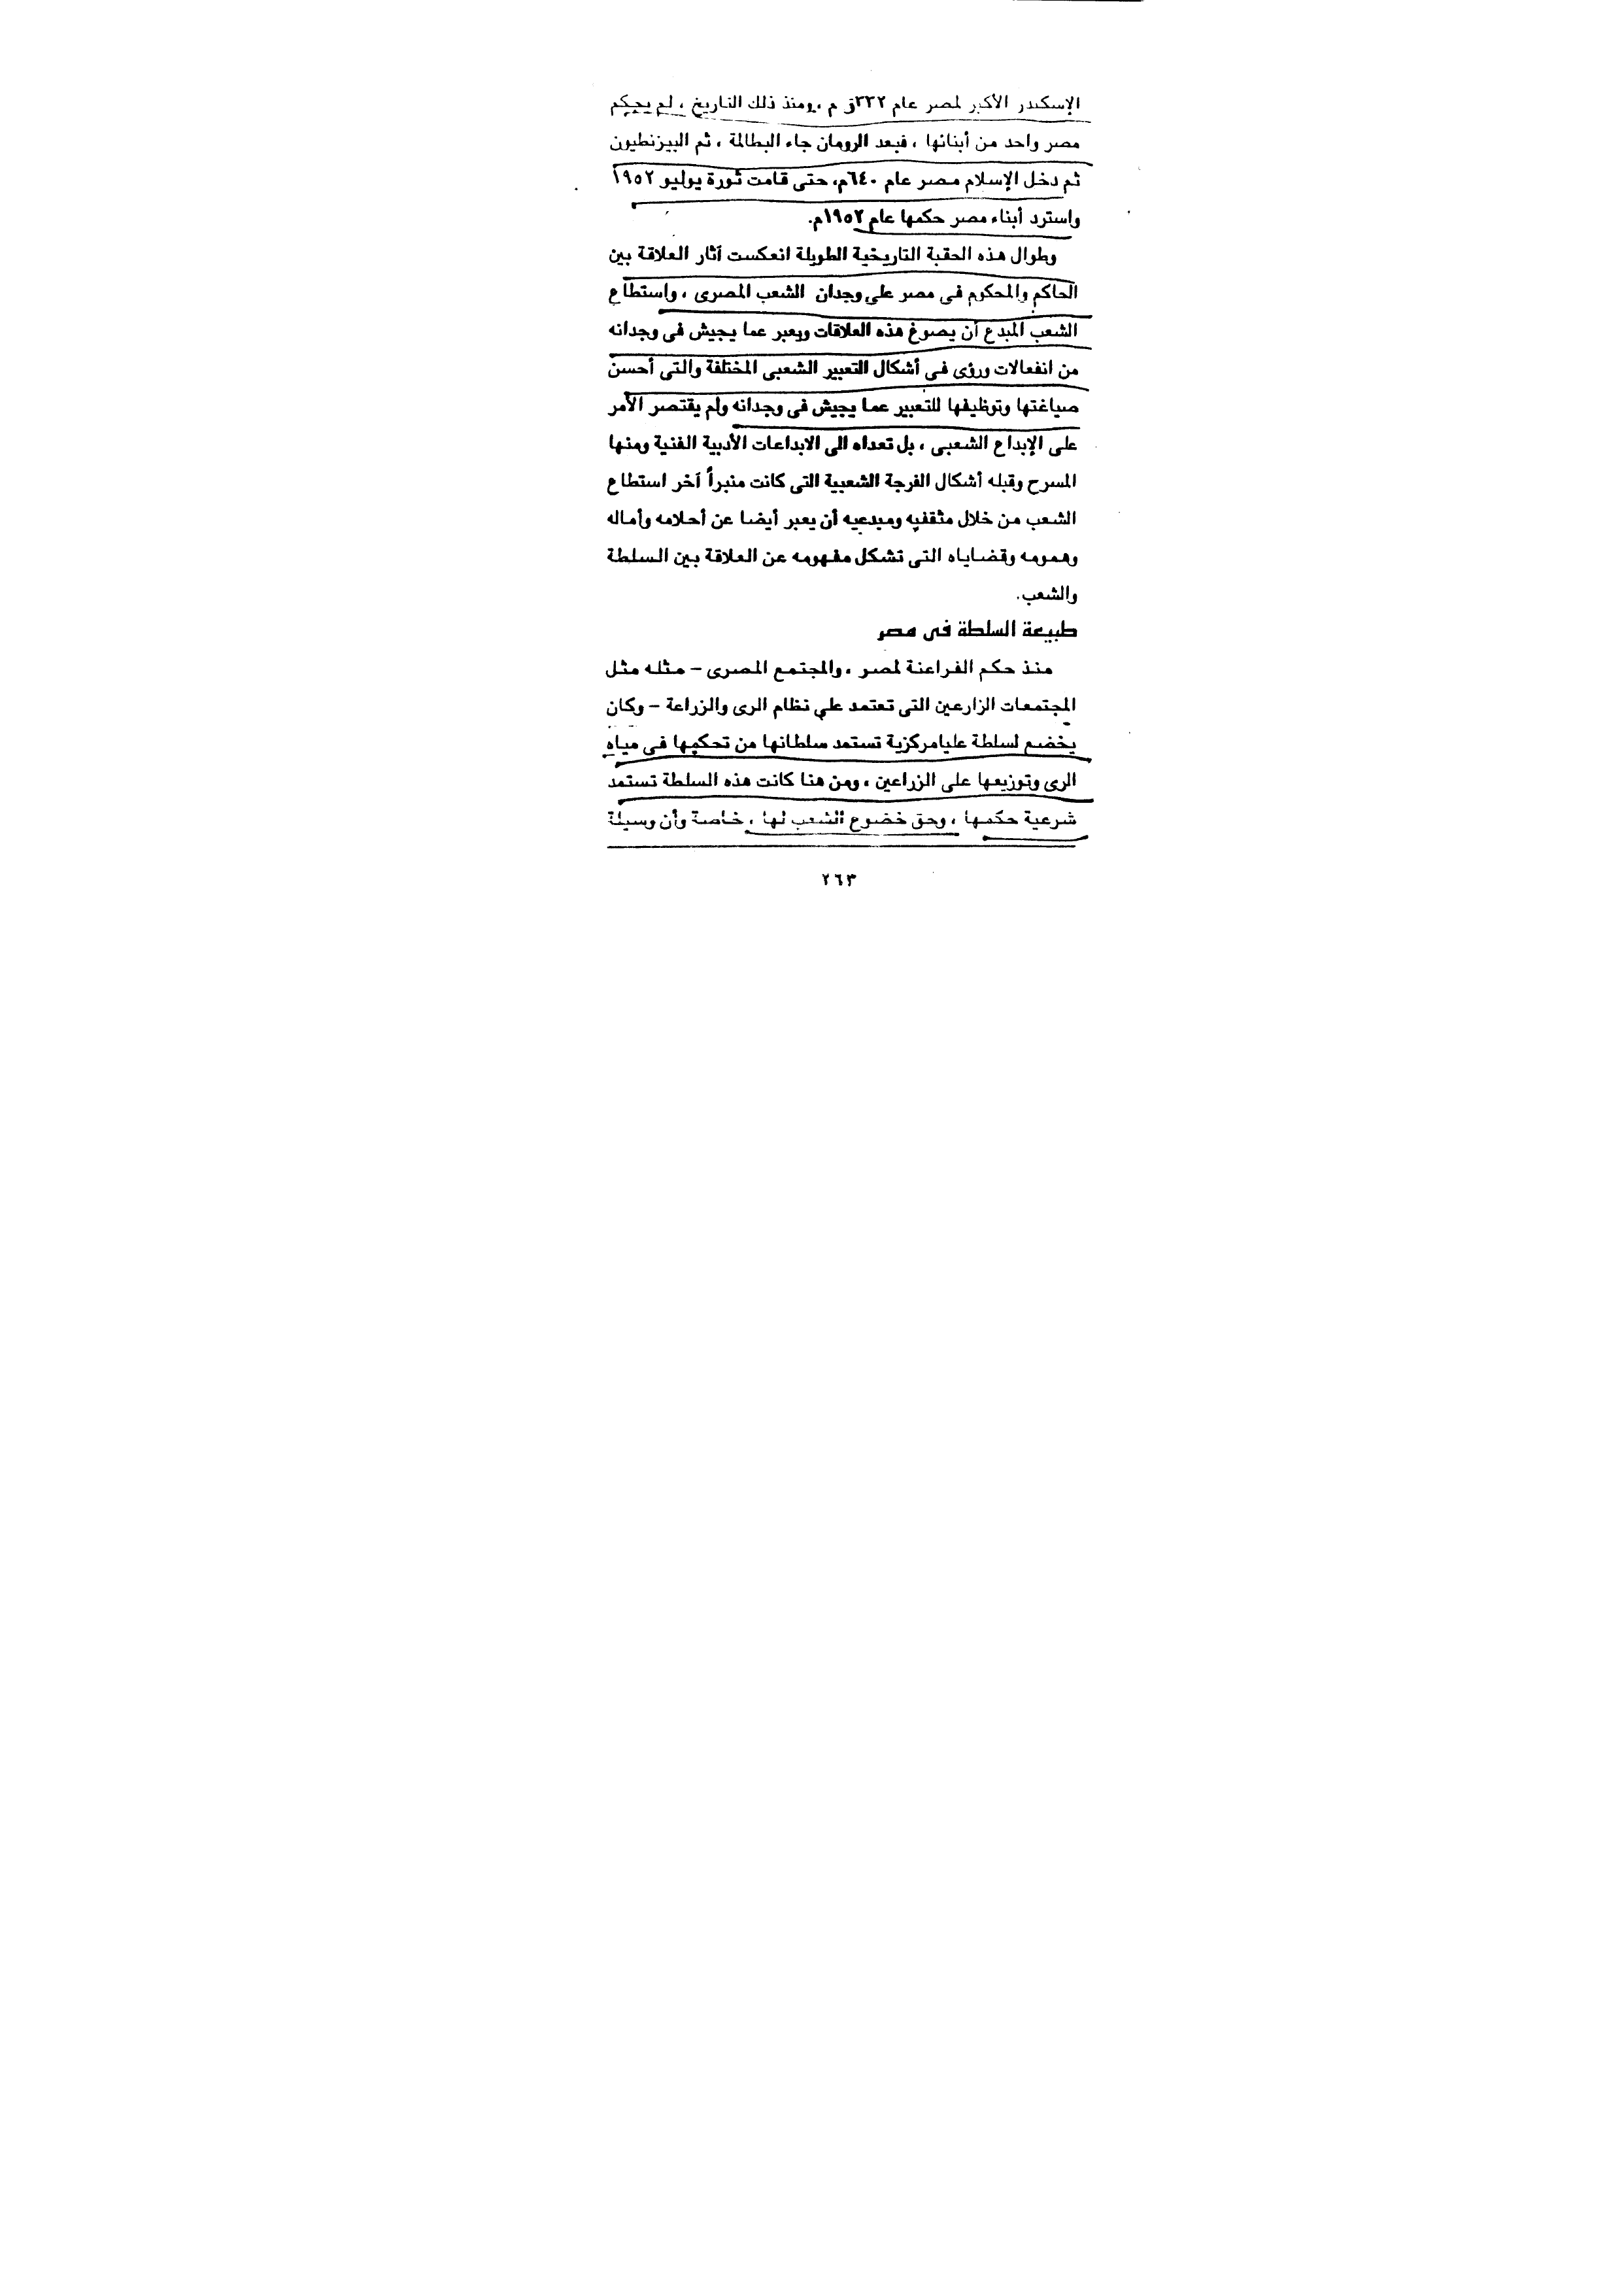 الإسكندر الأكبر لمصر عام ٣٣٢ق م ، ومنذ ذلك التاريخ ، لم يحكم
مصر واحد من أبنائها ، فبعد الرومان جاء البطالمة ، ثم البيزنطيون
ثم دخل الإسلام مصر عام ٦٤٠م، حتى قامت ثورة يوليو ١٩٥٢
واسترد أبناء مصر حكمها عام ١٩٥٢م.
وطوال هذه الحقبة التاريخية الطويلة انعكست آثار العلاقة بين
الحاكم والمحكوم فى مصر على وجدان الشعب المصرى ، واستطاع
الشعب المبدع أن يصوغ هذه العلاقات ويعبر عما يجيش فى وجدانه
من انفعالات ورؤى فى أشكال التعبير الشعبى المختلفة والتى أحسن
صياغتها وتوظيفها للتعبير عما يجيش فى وجدانه ولم يقتصر الأمر
على الإبداع الشعبى ، بل تعداه الى الابداعات الأدبية الفنية ومنها
المسرح وقبله أشكال الفرجة الشعبية التى كانت منبراً آخر استطاع
الشعب من خلال مثقفيه ومبدعيه أن يعبر أيضا عن أحلامه وأماله
وهمومه وقضاياه التى تشكل مفهومه عن العلاقة بين السلطة
والشعب.
طبيعة السلطة فى مصر
منذ حكم الفراعنة لمصر ، والمجتمع المصرى – مثله مثل
المجتمعات الزارعين التى تعتمد على نظام الرى والزراعة – وكان
يخضع لسلطة عليامركزية تستمد سلطانها من تحكمها فى مياه
الرى وتوزيعها على الزراعين ، ومن هنا كانت هذه السلطة تستمد
شرعية حكمها ، وحق خضوع الشعب لها ، خاصة وأن وسيلة
٢٦٣